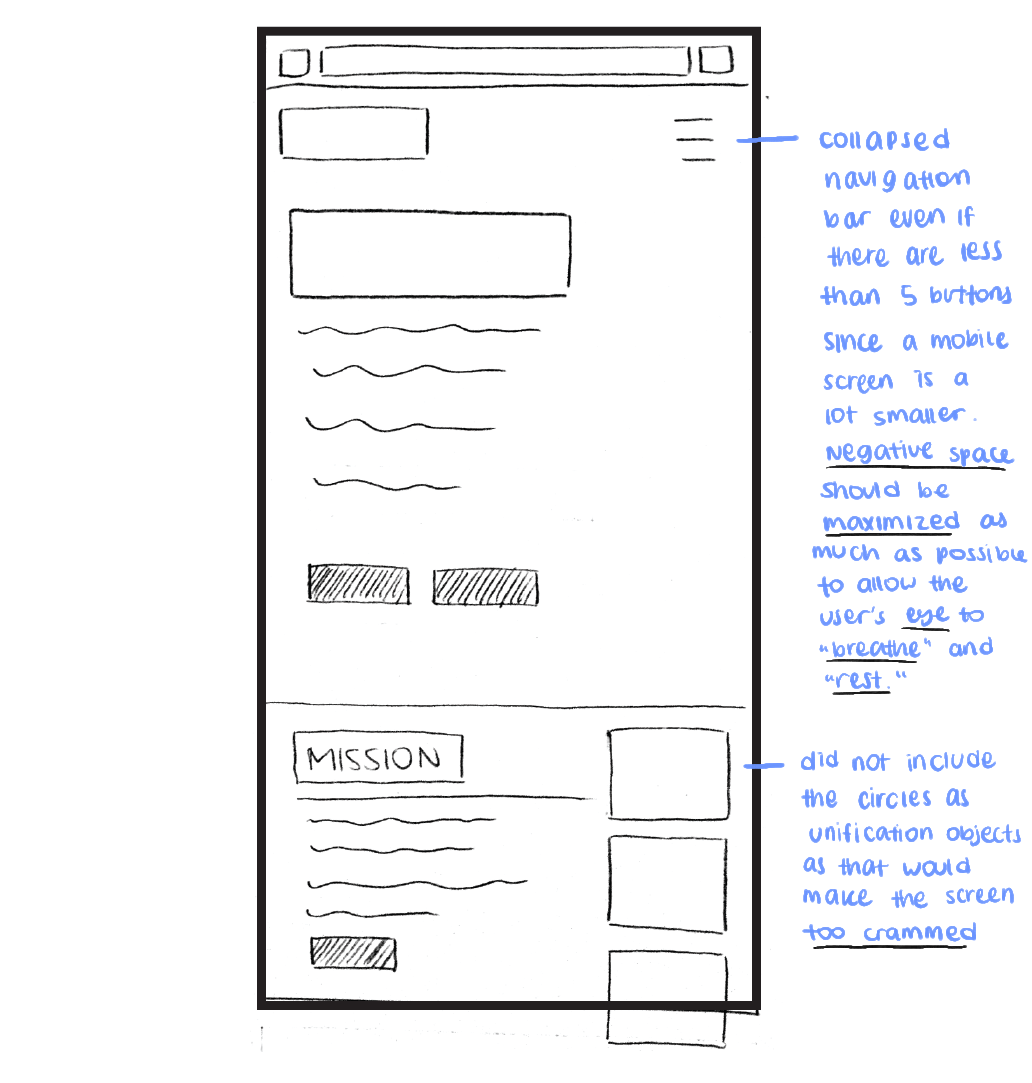 collapsed
navigation
bar even if
there are less
than 5 buttons
since a mobile
screen is a
lot smaller.
Negative space
should be
maximized as
much as possible
to allow the
user's eye to
"breathe" and
"rest."
MISSION
did not include
the circles as
unification objects
as that would
make the screen
too crammed